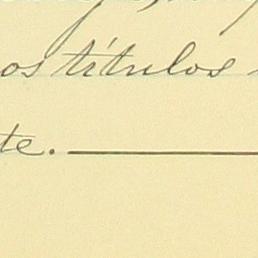 os títulos
te.